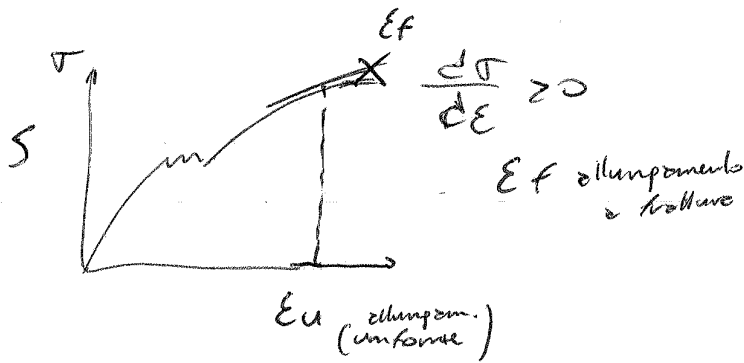 εf
σ
dσ/dε ≥0
S
εf allungamento
a frattura
εu allungam.
(uniforme)